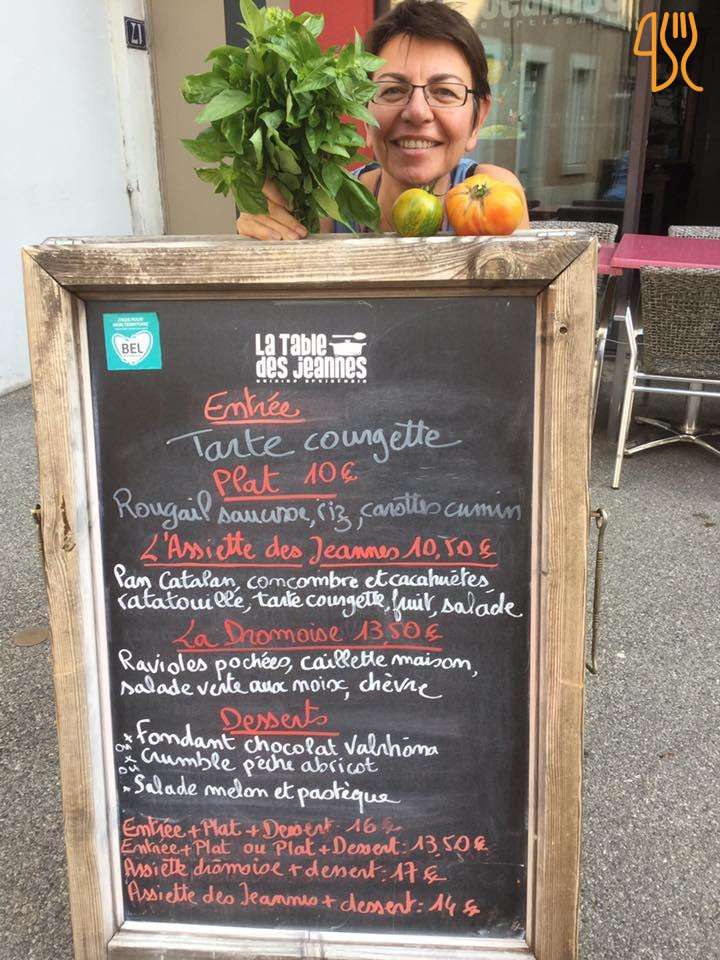 17
Jeannes
J'AGIS POUR
MON TERRITOIRE
BEL
La Table
des Jeannes
Entrée
Tarte courgette
Plat 10 €
Rougail saucisse, riz, carottes cumin
L'Assiette des Jeannes 10,50 €
Pan Catalan, concombre et cacahuètes,
ratatouille, tarte courgette, fruit, salade
La Dromoise 13,50 €
Ravioles pochées, caillette maison,
salade verte aux noix, chèvre
Desserts
* Fondant chocolat Valrhôna
* Crumble pêche abricot
* Salade melon et pastèque
Entrée + Plat + Dessert : 16 €
Entrée + Plat ou Plat + Dessert : 13,50 €
Assiette drômoise + dessert : 17 €
Assiette des Jeannes + dessert : 14 €